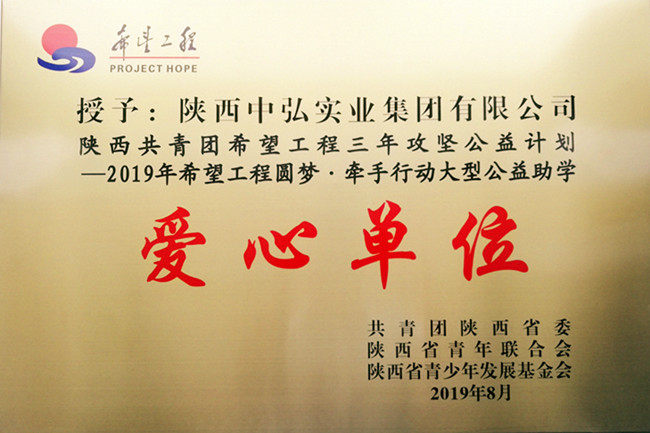 希望工程
PROJECT HOPE
授予：陕西中弘实业集团有限公司
陕西共青团希望工程三年攻坚公益计划
—2019年希望工程圆梦·牵手行动大型公益助学
爱心单位
共青团陕西省委
陕西省青年联合会
陕西省青少年发展基金会
2019年8月